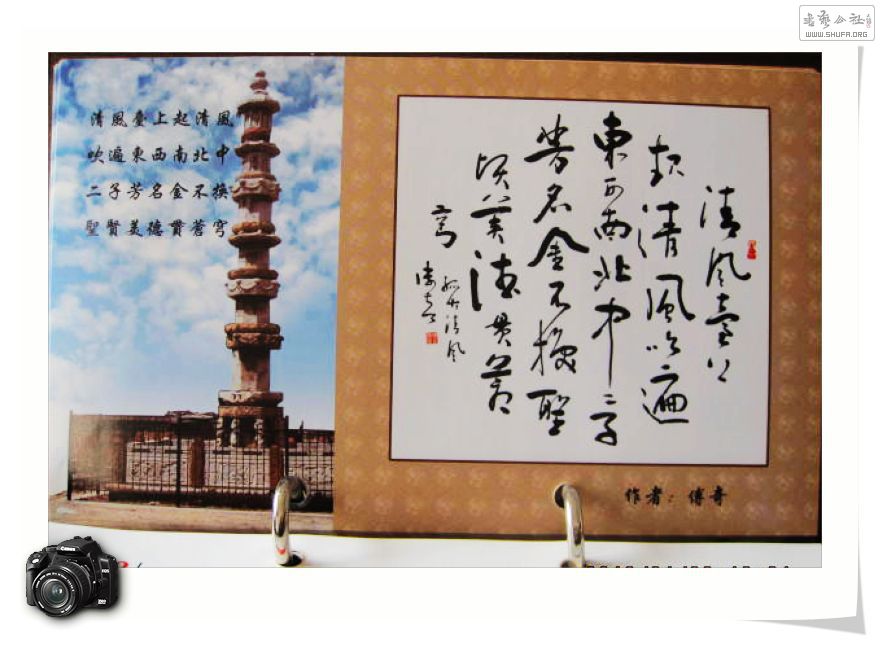 書藝公社
WWW.SHUFA.ORG
清風臺上起清風
吹遍東西南北中
二子芳名金不換
聖賢美德貫蒼穹
清風臺上
起清風吹遍
東西南北中二子
芳名金不換聖
賢美德貫蒼
穹
孤竹清風
傳奇
作者：傳奇
Canon
EOS